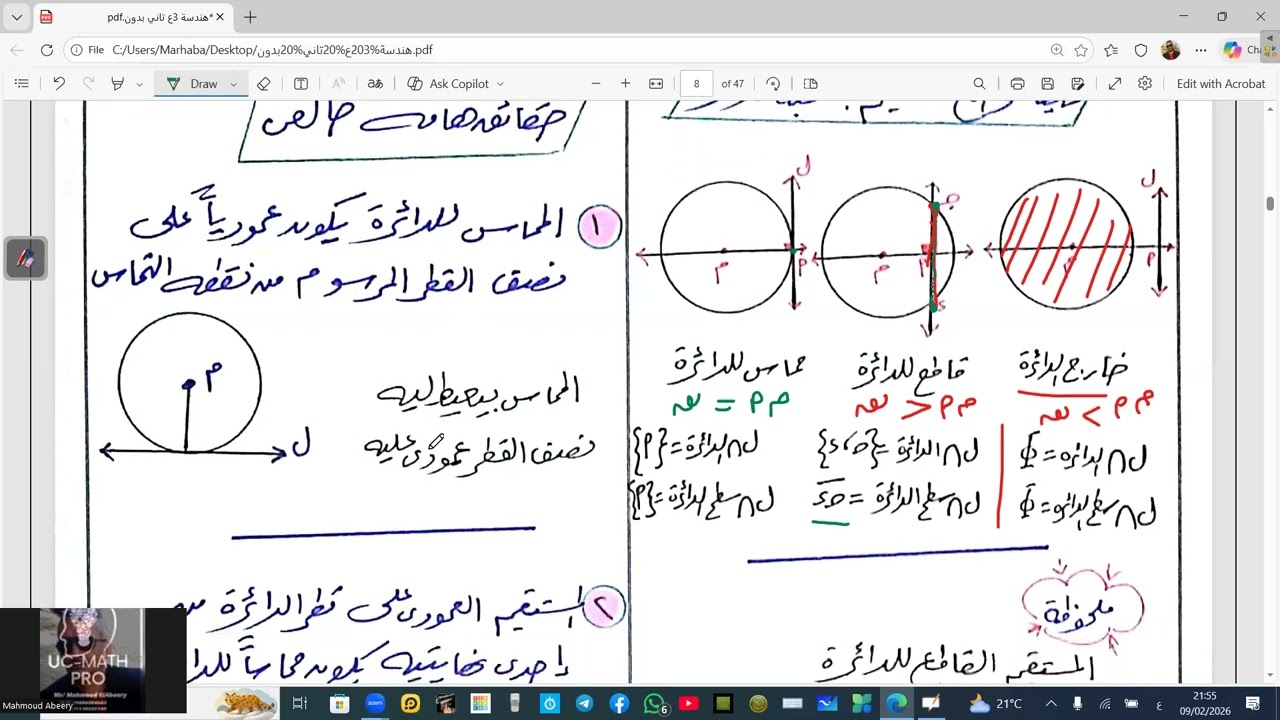 هندسة 3ع تاني بدون.pdf*
File
C:/Users/Marhaba/Desktop/هندسة%203ع%20تاني%20بدون.pdf
Draw
Ask Copilot
8
of 47
Edit with Acrobat
خارج الدائرة
م م < نه
ل ∩ الدائرة = Φ
ل ∩ سطح الدائرة = Φ
قاطع للدائرة
ل ∩ الدائرة =
ل ∩ سطح الدائرة =
مماس للدائرة
ل ∩ الدائرة = {م}
ل ∩ سطح الدائرة = {م}
ملحوظة
المستقيم القاطع للدائرة
حقائق هامه خالص
١ المماس للدائرة يكون عمودياً على
نصف القطر المرسوم من نقطه التماس
م
ل
المماس بيعيط ليه
نصف القطر عمودى عليه
٢ المستقيم العمودى على قطر الدائرة من
إحدى نهايتيه يكون مماساً للدا
UC-MATH
PRO
Mr/ Mahmoud ELAbeery
Mahmoud Abeery
21°C
21:55
09/02/2026